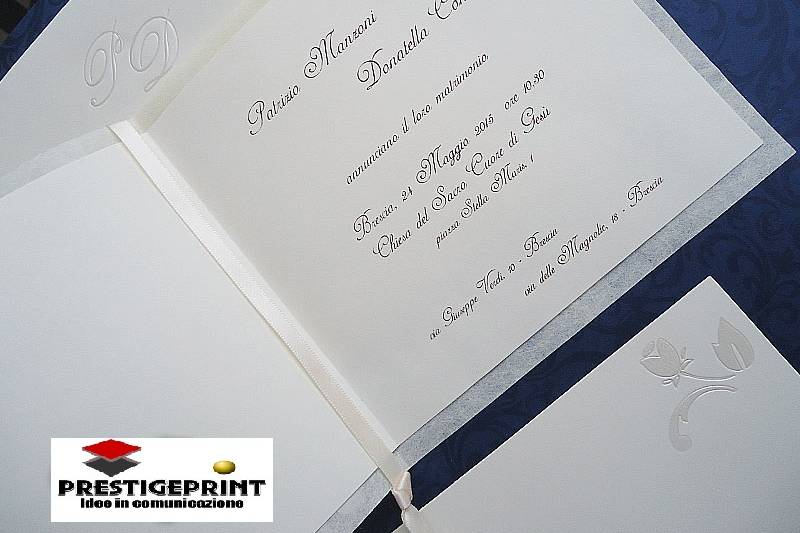 P D
Patrizio Manzoni
Donatella
annunciano il loro matrimonio
Brescia, 24 Maggio 2015 ore 10.30
Chiesa del Sacro Cuore di Gesù
piazza Stella Maris, 1
via Giuseppe Verdi, 10 - Brescia
via delle Magnolie, 18 - Brescia
PRESTIGEPRINT
Idee in comunicazione